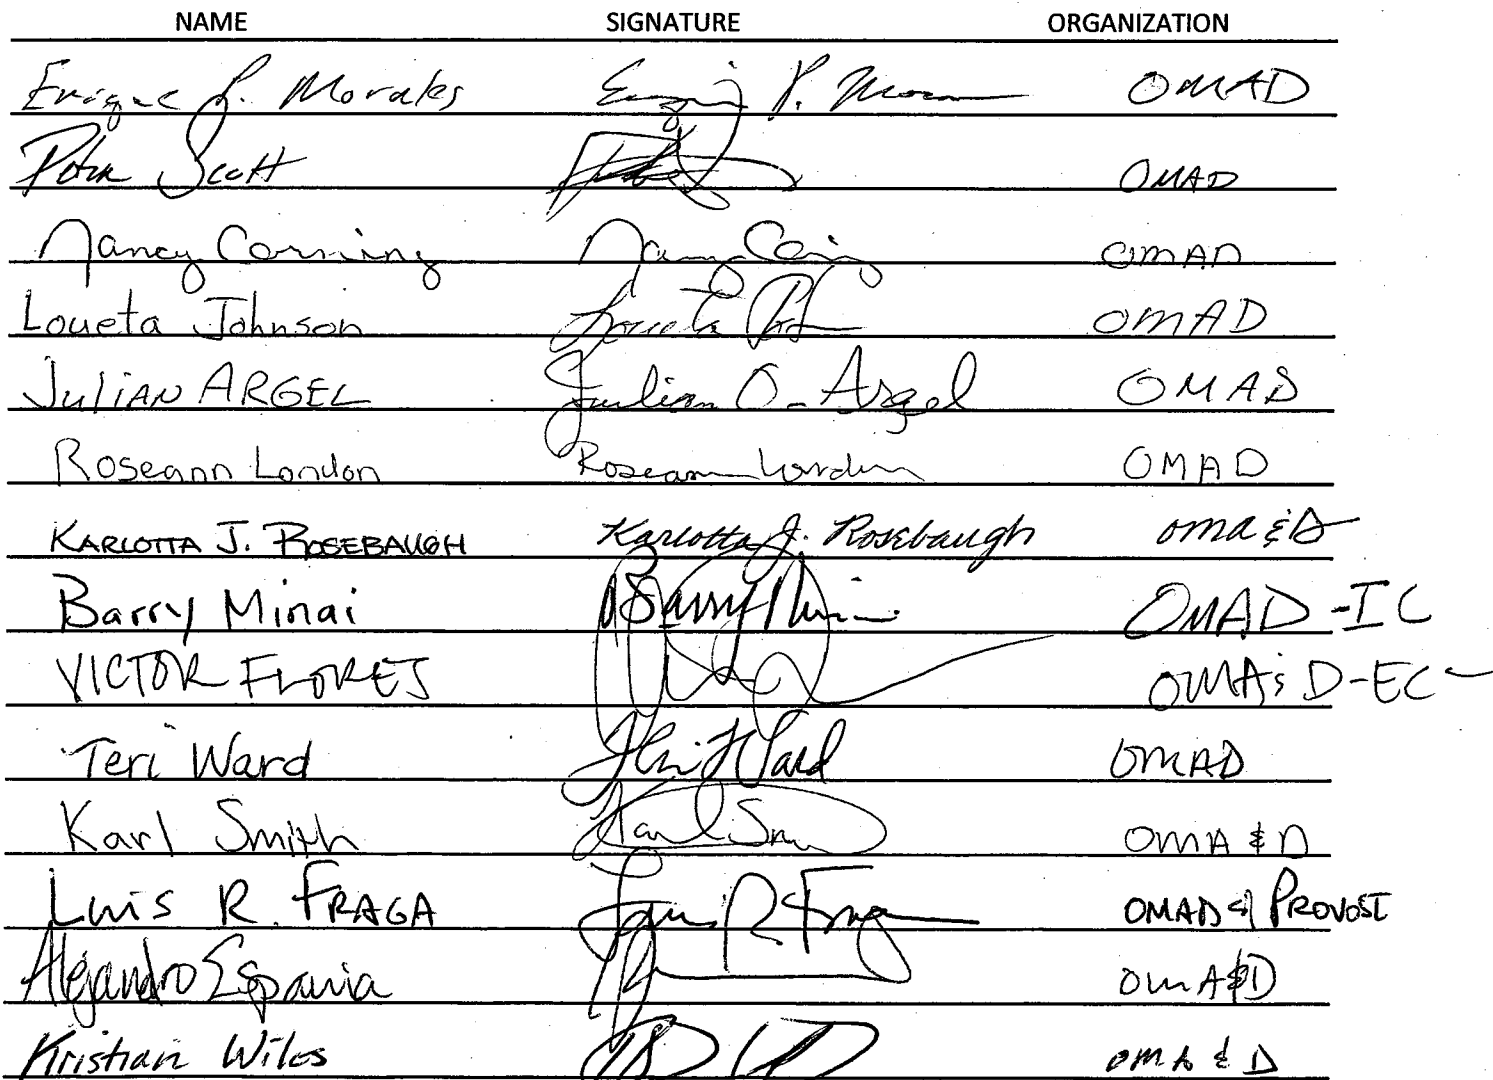 NAME SIGNATURE ORGANIZATION
Enrique P. Morales OMAD
Scott OMAD
Nancy Corning Nancy OMAD
Loueta Johnson Loueta OMAD
JULIAN ARGEL Julian O. Argel OMAD
Roseann London Roseann London OMAD
KARLOTTA J. ROSEBAUGH Karlotta J. Rosebaugh OMA & D
Barry Minai Barry OMAD-IC
VICTOR FLORES OMA & D-EC
Teri Ward Teri Ward OMAD
Karl Smith Karl OMA & D
Luis R. FRAGA Luis R. Fraga OMAD & PROVOST
Alejandro Espania OMA&D
Kristian Wiles OMA & D